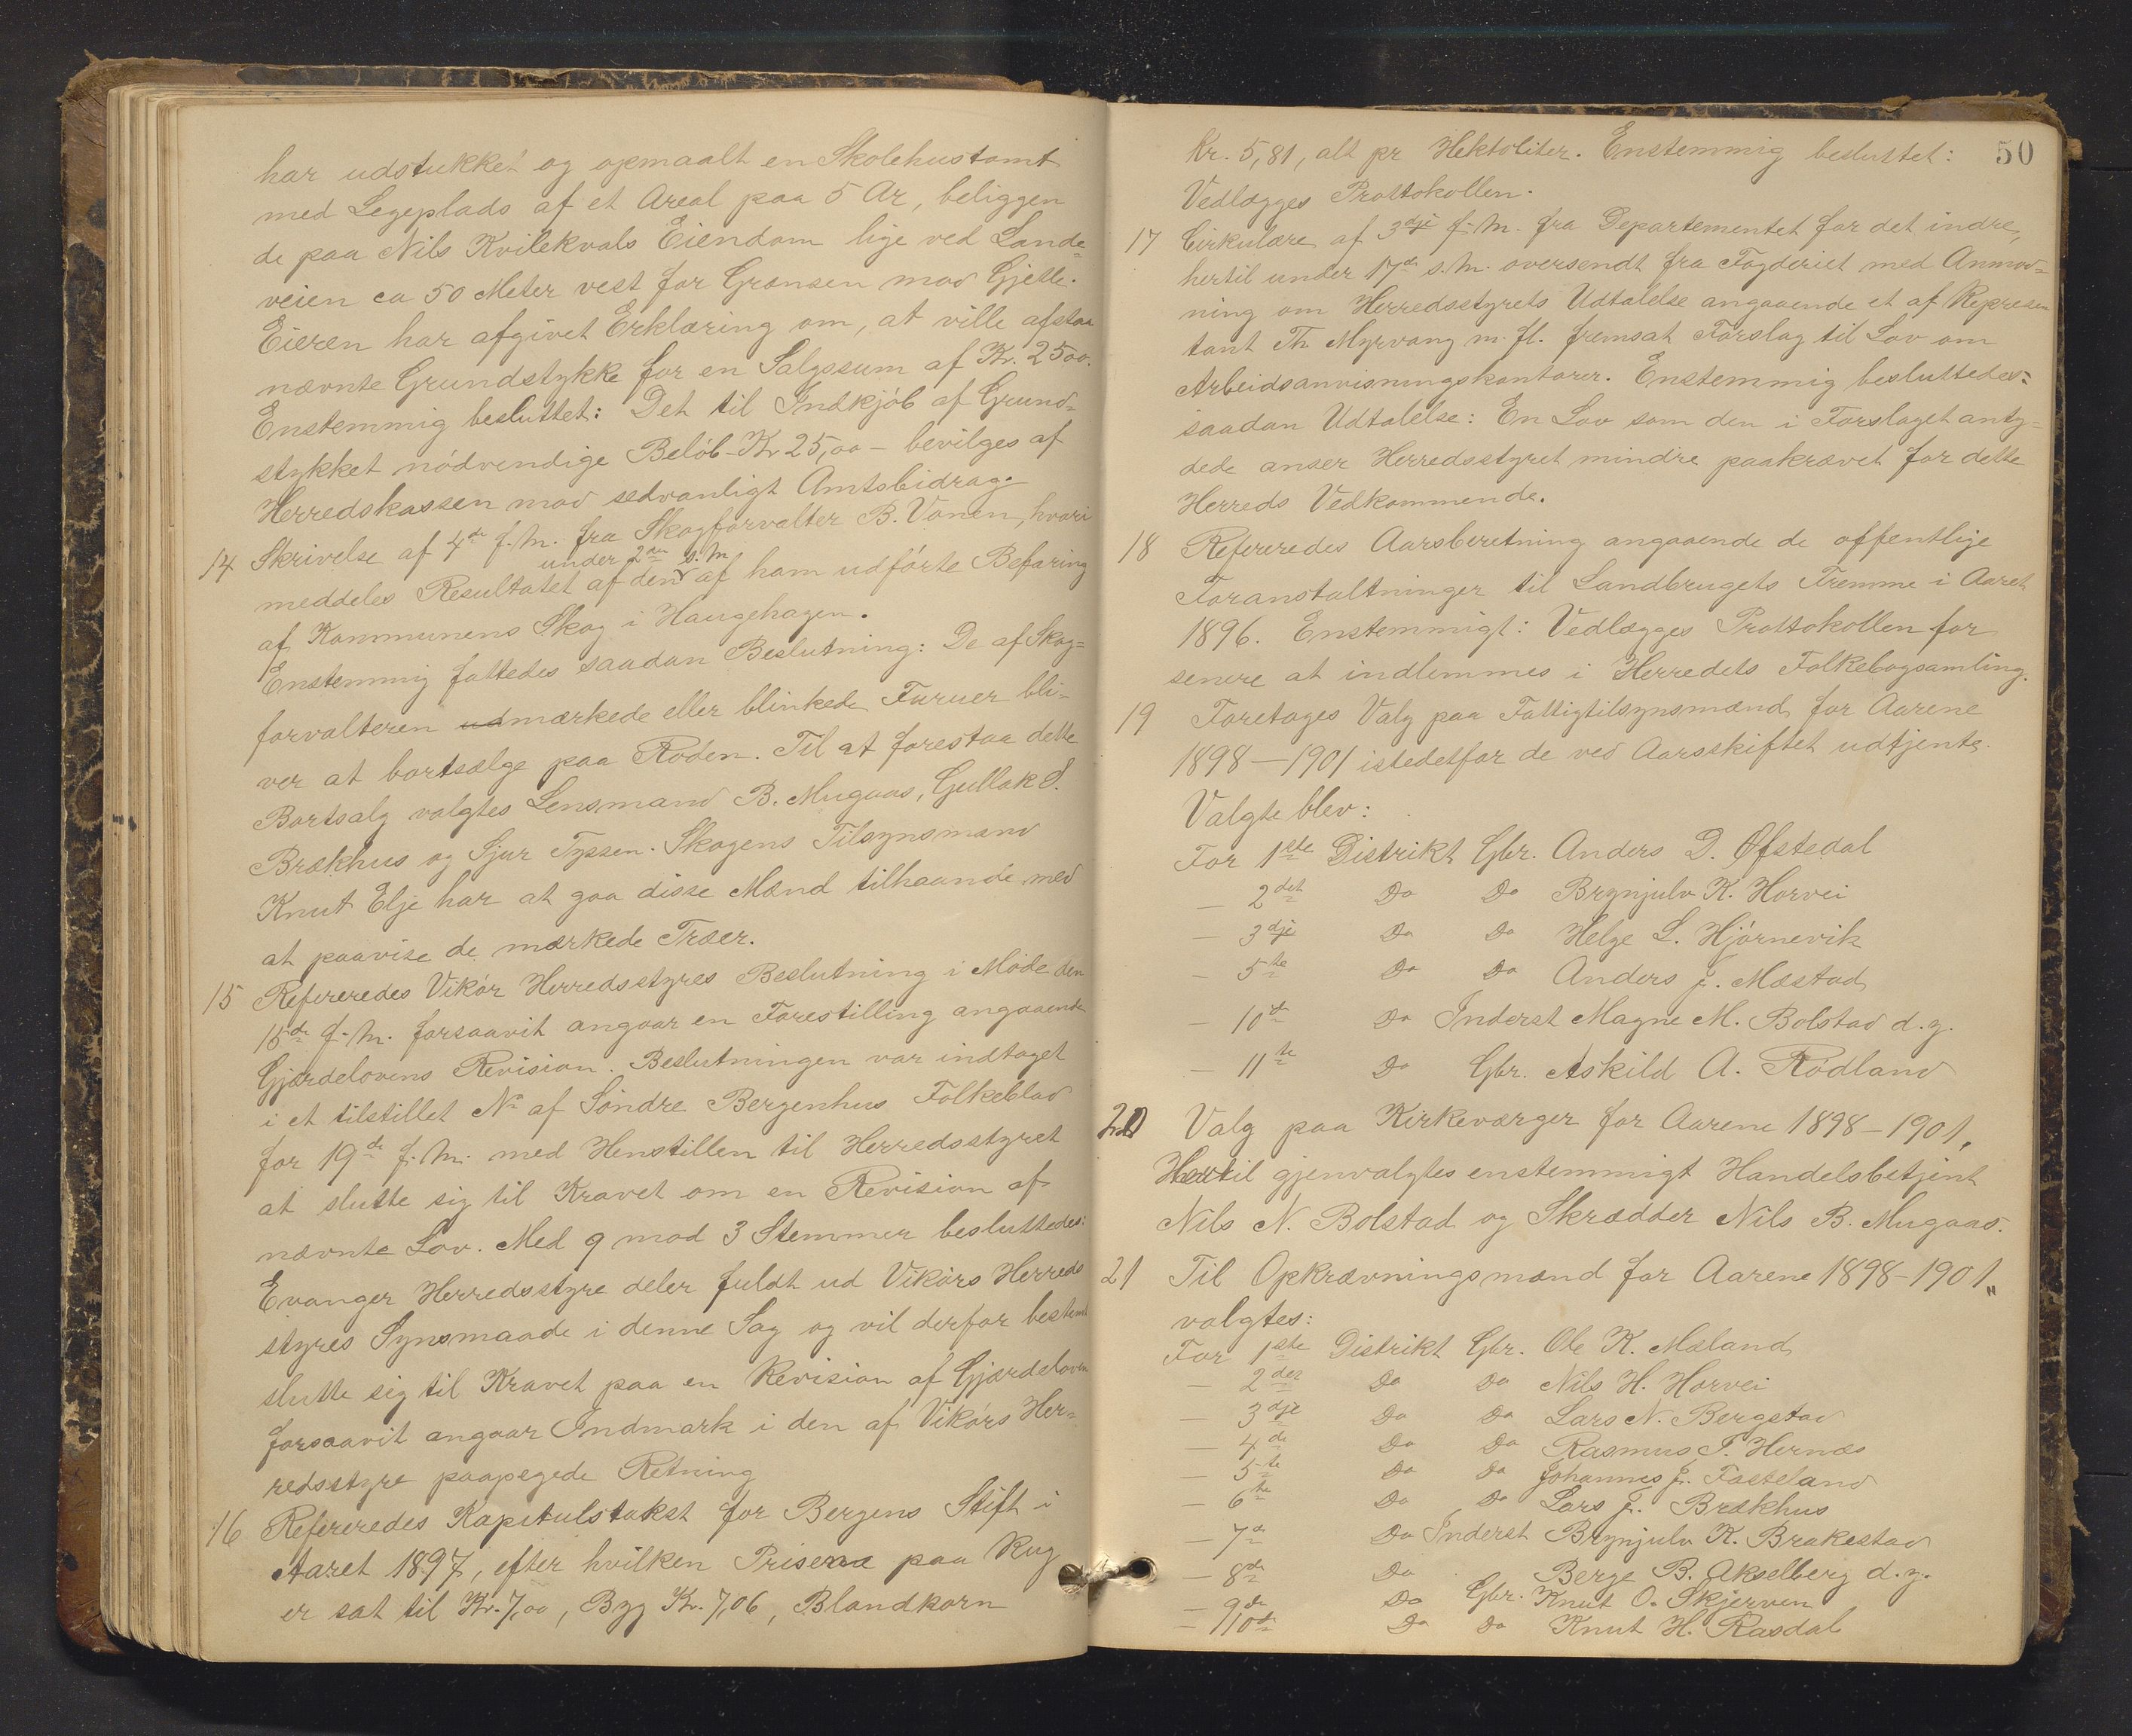 har udstukket og opmaalt en Skolehustomt
med Legeplads af et Areal paa 5 Ar, beliggen
de paa Nils Kvilekvals Eiendom lige ved Lande=
veien ca 50 Meter vest for Grænsen mod Gjelle.
Eieren har afgivet Erklæring om, at ville afstaa
nævnte Grundstykke for en Salgssum af Kr. 25oo.
Enstemmig besluttet: Det til Indkjøb af Grund=
stykket nødvendige Beløb - Kr 25,oo - bevilges af
Herredskassen mod sedvanligt Amtsbidrag.
14 Skrivelse af 4de f.M. fra Skogforvalter B. Vonen, hvori
under 2den s.M
meddeles Resultatet af den af ham udførte Befaring
af Kommunens Skog i Haugehagen.
Enstemmig fattedes saadan Beslutning: De af Skog=
forvalteren udmærkede eller blinkede Furuer bli=
ver at bortsælge paa Roden. Til at forestaa dette
Bortsalg valgtes Lensmand B. Mugaas, Gullak S.
Brækhus og Sjur Tyssen. Skogens Tilsynsmand
Knut Elje har at gaa disse Mænd tilhaande med
at paavise de mærkede Træer.
15 Refereredes Vikør Herredsstyres Beslutning i Møde den
15de f.M. forsaavit angaar en Forestilling angaaende
Gjærdelovens Revision. Beslutningen var indtaget
i et tilstillet No af Søndre Bergenhus Folkeblad
for 19de f.M. med Henstillen til Herredsstyret
at slutte sig til Kravet om en Revision af
nævnte Lov. Med 9 mod 3 Stemmer besluttedes:
Evanger Herredsstyre deler fuldt ud Vikørs Herreds
styres Synsmaade i denne Sag og vil derfor bestemt
slutte sig til Kravet paa en Revision af Gjærdeloven
forsaavit angaar Indmark i den af Vikørs Her=
redsstyre paapegede Retning
16 Refereredes Kapitulstakst for Bergens Stift i
Aaret 1897, efter hvilken Priserne paa Rug
er sat til Kr. 7,oo, Byg Kr. 7,06, Blandkorn
50
Kr. 5,81, alt pr Hektoliter. Enstemmig besluttet:
Vedlægges Prottokollen.
17 Cirkulære af 3dje f.M. fra Departementet for det indre,
hertil under 17de s.M. oversendt fra Fogderiet med Anmod=
ning om Herredsstyrets Udtalelse angaaende et af Repræsen
tant Th Myrvang m.fl. fremsat Forslag til Lov om
Arbeidsanvisningskontorer. Enstemmig besluttedes:
saadan Udtalelse: En Lov som den i Forslaget anty=
dede anser Herredsstyret mindre paakrævet for dette
Herreds Vedkommende.
18 Refereredes Aarsberetning angaaende de offentlige
Foranstaltninger til Landbrugets Fremme i Aaret
1896. Enstemmigt: Vedlægges Prottokollen for
senere at indlemmes i Herredets Folkebogsamling.
19 Foretoges Valg paa Fattigtilsynsmænd for Aarene
1898-1901 istedetfor de ved Aarsskiftet udtjente.
Valgte blev:
For 1ste Distrikt Gbr. Anders D. Øfstedal
- 2det Do Do Brynjulv K. Horvei
- 3dje Do Do Helge L. Hjørnevik
- 5te Do Do Anders J. Mæstad
- 10de Do Inderst Magne M. Bolstad d.y.
- 11te Do Gbr. Askild A. Rødland
20 Valg paa Kirkeværger for Aarene 1898-1901.
Hertil gjenvalgtes enstemmigt Handelsbetjent
Nils N. Bolstad og Skrædder Nils B. Mugaas.
21 Til Opkrævningsmænd for Aarene 1898-1901
valgtes:
For 1ste Distrikt Gbr. Ole K. Mæland
- 2det Do Do Nils H. Horvei
- 3dje Do Do Lars N. Bergstad
- 4de Do Do Rasmus T. Hernæs
- 5te Do Do Johannes J. Fasteland
- 6te Do Do Lars J. Brækhus
- 7de Do Inderst Brynjulv K. Brakestad
- 8de Do Berge B. Akselberg d.y.
- 9de Do Gbr. Knut O. Skjerven
- 10de Do Do Knut H. Rasdal